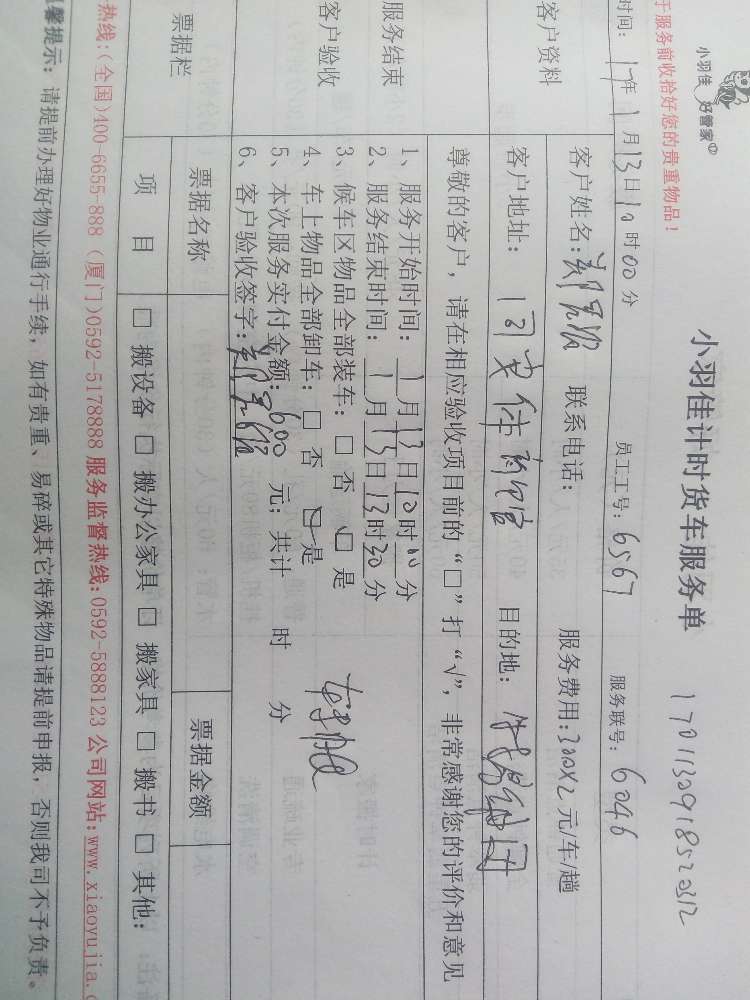 小羽佳 好管家
小羽佳计时货车服务单
1701130918520312
于服务前收拾好您的贵重物品！
时间：17年1月13日10时00分 员工工号：6567 服务联号：6046
客户资料
客户姓名： 联系电话： 服务费用：300X2元/车/趟
客户地址： 目的地：
尊敬的客户，请在相应验收项目前的“□”打“√”，非常感谢您的评价和意见
服务结束
客户验收
1、服务开始时间：1月13日10时00分
2、服务结束时间：1月13日13时30分
3、候车区物品全部装车：□否 □是
4、车上物品全部卸车：□否 □是
5、本次服务实付金额：600元；共计 时 分
6、客户验收签字：
票据栏
票据名称 票据金额
项 目 □搬设备 □搬办公家具 □搬家具 □搬书 □其他：
热线：(全国)400-6655-888 (厦门)0592-5178888 服务监督热线：0592-5888123 公司网站：www.xiaoyujia.c
温馨提示：请提前办理好物业通行手续，如有贵重、易碎或其它特殊物品请提前申报，否则我司不予负责。